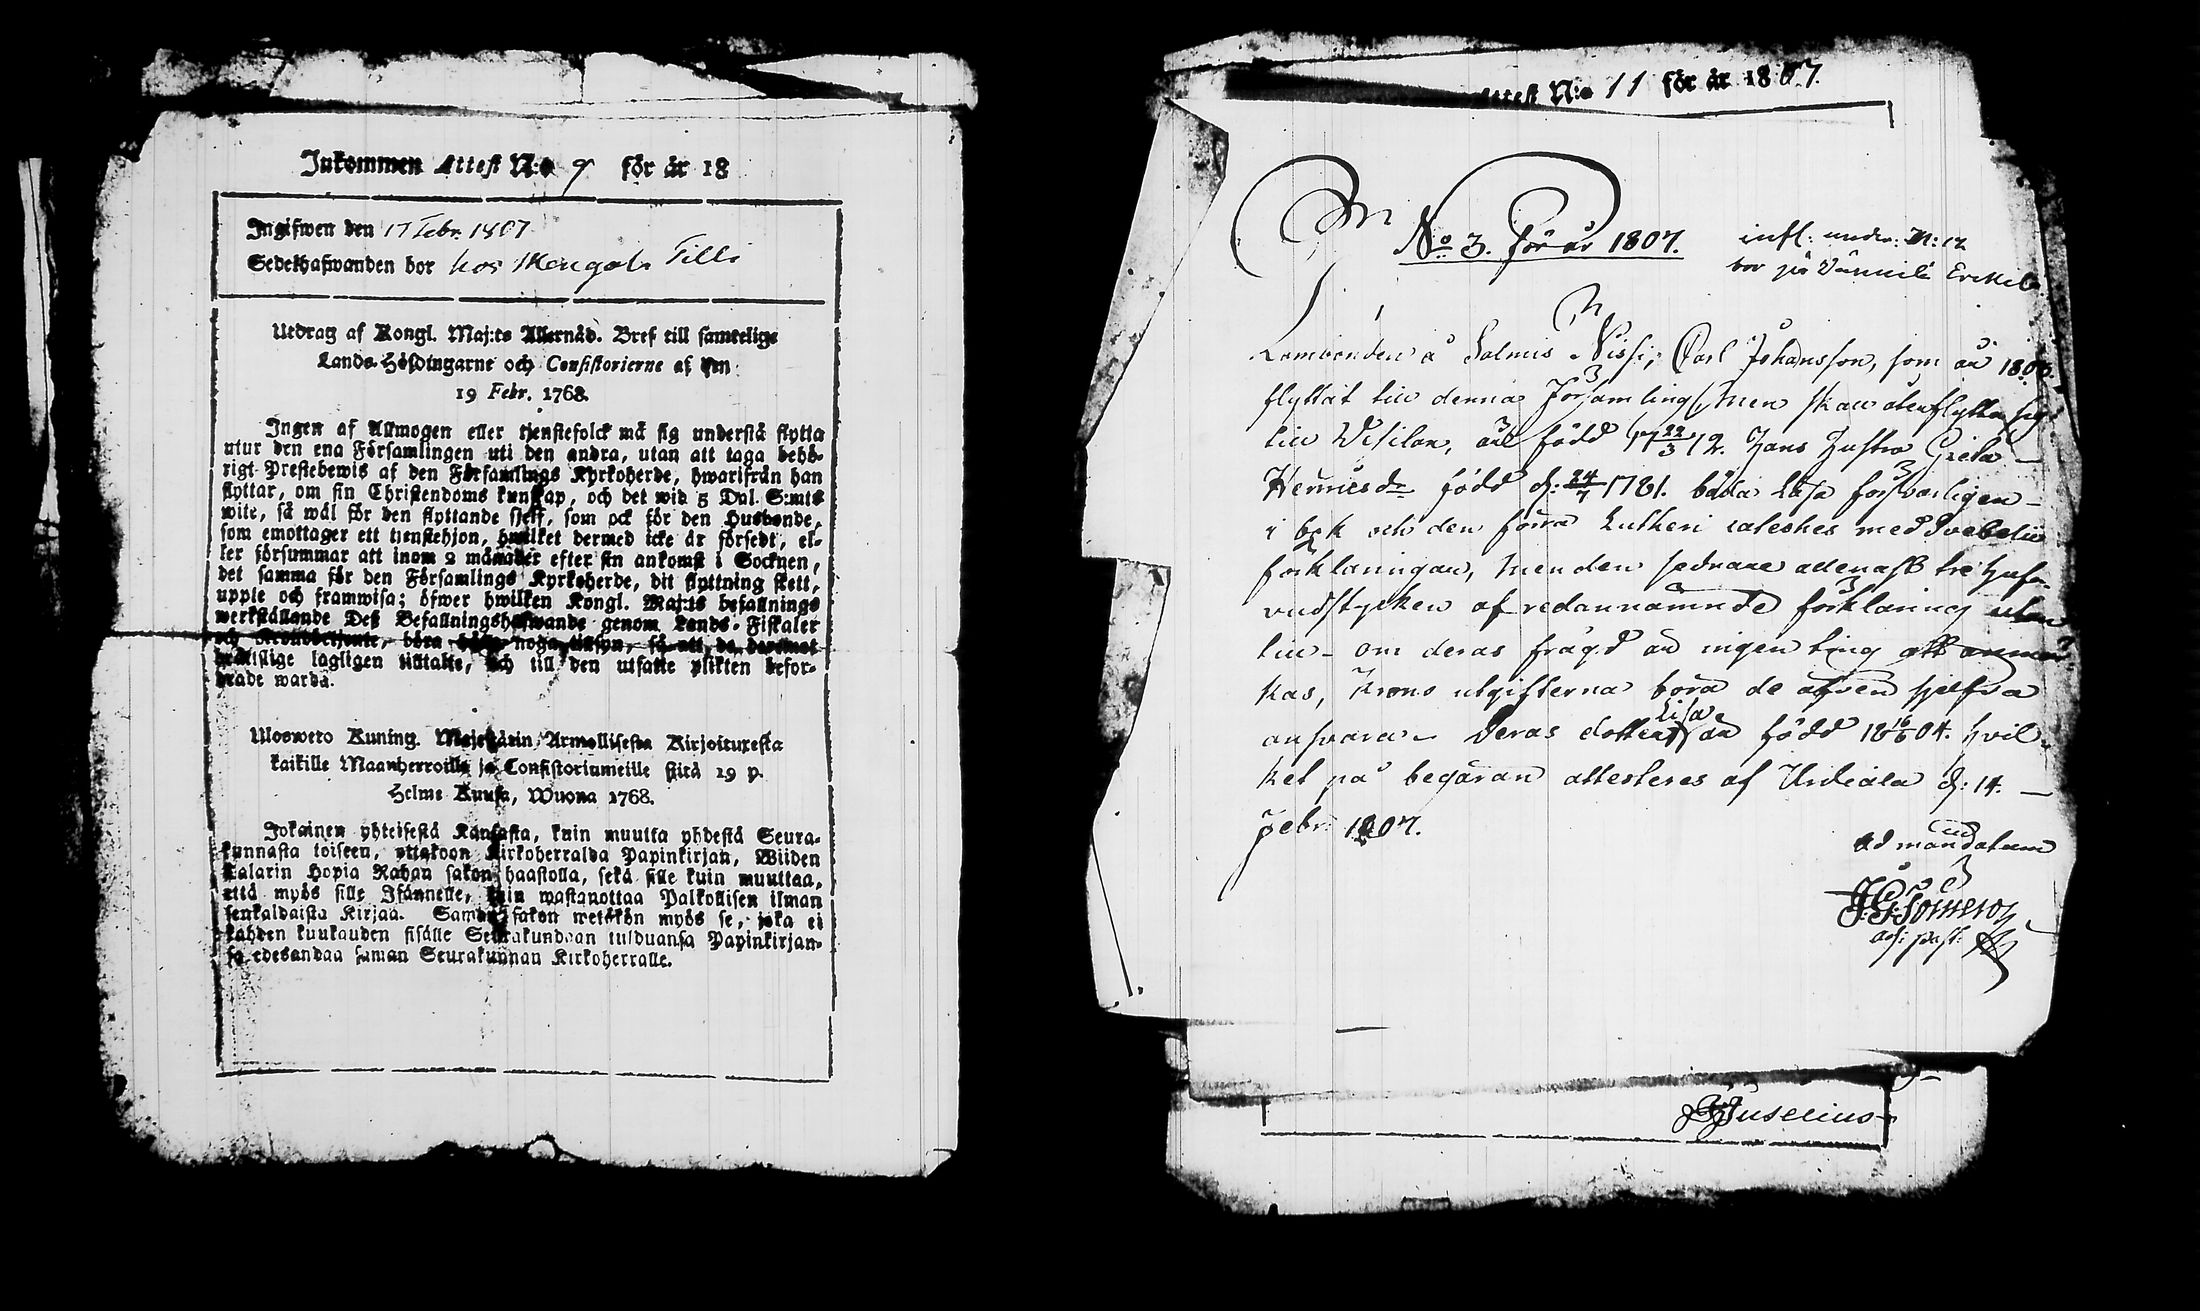 Inkommen Attest N:o 9 för år 18
Ingifwen den 17 Febr. 1807
Sedelhafwanden bor hos Mengals Tilli
Utdrag af Kongl. Maj:ts Allernåd. Bref till samtelige
Lands-Höfdingarne och Consistorierne af den
19 Febr. 1768.
Ingen af Allmogen eller tjenstefolck må sig understå flytta
utur den ena Församlingen uti den andra, utan att taga behö-
rigt Prestebewis af den Församlings Kyrkoherde, hwarifrån han
flyttar, om sin Christendoms kunskap, och det wid 5 Dal. S:mts
wite, så wäl för den flyttande sjelf, som ock för den Husbonde,
som emottager ett tjenstehjon, hwilket dermed icke är försedt, el-
ler försummar att inom 2 månader efter sin ankomst i Socknen,
det samma för den Församlings Kyrkoherde, dit flyttning skett,
uppte och framwisa; öfwer hwilken Kongl. Maj:ts befallnings
werkställande Deß Befallningshafwande genom Lands-Fiskaler
och Kronobetjente, böra hafwa noga tillsyn, så att de deremot
bråttslige lagligen tilltalte, och till den utsatte plikten befor-
drade warda.
Ulosweto Kuning. Majestätin Armollisesta Kirjoituxesta
kaikille Maanherroille ja Consistoriumeille siitä 19 p.
Helme Kuusa, Wuona 1768.
Jokainen yhteisestä Kansasta, kuin muutta yhdestä Seura-
kunnasta toiseen, ottakoon Kirkoherralda Papinkirjan, Wiiden
Talarin Hopia Rahan sakon haastolla, sekä sille kuin muuttaa,
että myös sille Isännelle, kuin wastanottaa Palkollisen ilman
senkaldaista Kirjaa. Saman sakon wetäkön myös se, joka ei
kahden kuukauden sisälle Seurakundaan tulduansa Papinkirjan-
sa edesandaa saman Seurakunnan Kirkoherralle.
Attest N:o 11 för år 1807.
No 3. för år 1807.
infl: under N: 12
bor på Vännilä Erkkilä
Lambonden å Salmis Nissi, Carl Johansson, som år 180
flyttat till denna Församling, men skall återflytta sig
till Vesilax, är född 17 22/3 72. Hans Hustru Greta
Henricsdr född d: 24/7 1781. båda läsa försvarligen
i bok och den förra Lutheri cateches med Svebelii
förklaringar, men den sednare allenast tre hufv
vudstycken af redannämnde förklaring utan
till - om deras frägd är ingen ting att anmär
kas, Krono utgifterna böra de äfven sjelfva
ansvara. Deras dotter Lisa är född 18 16/6 04. hvil-
ket på begäran attesteras af Urdiala d: 14.
Febr: 1807.
ad mandatum
adj: past:
Juselius